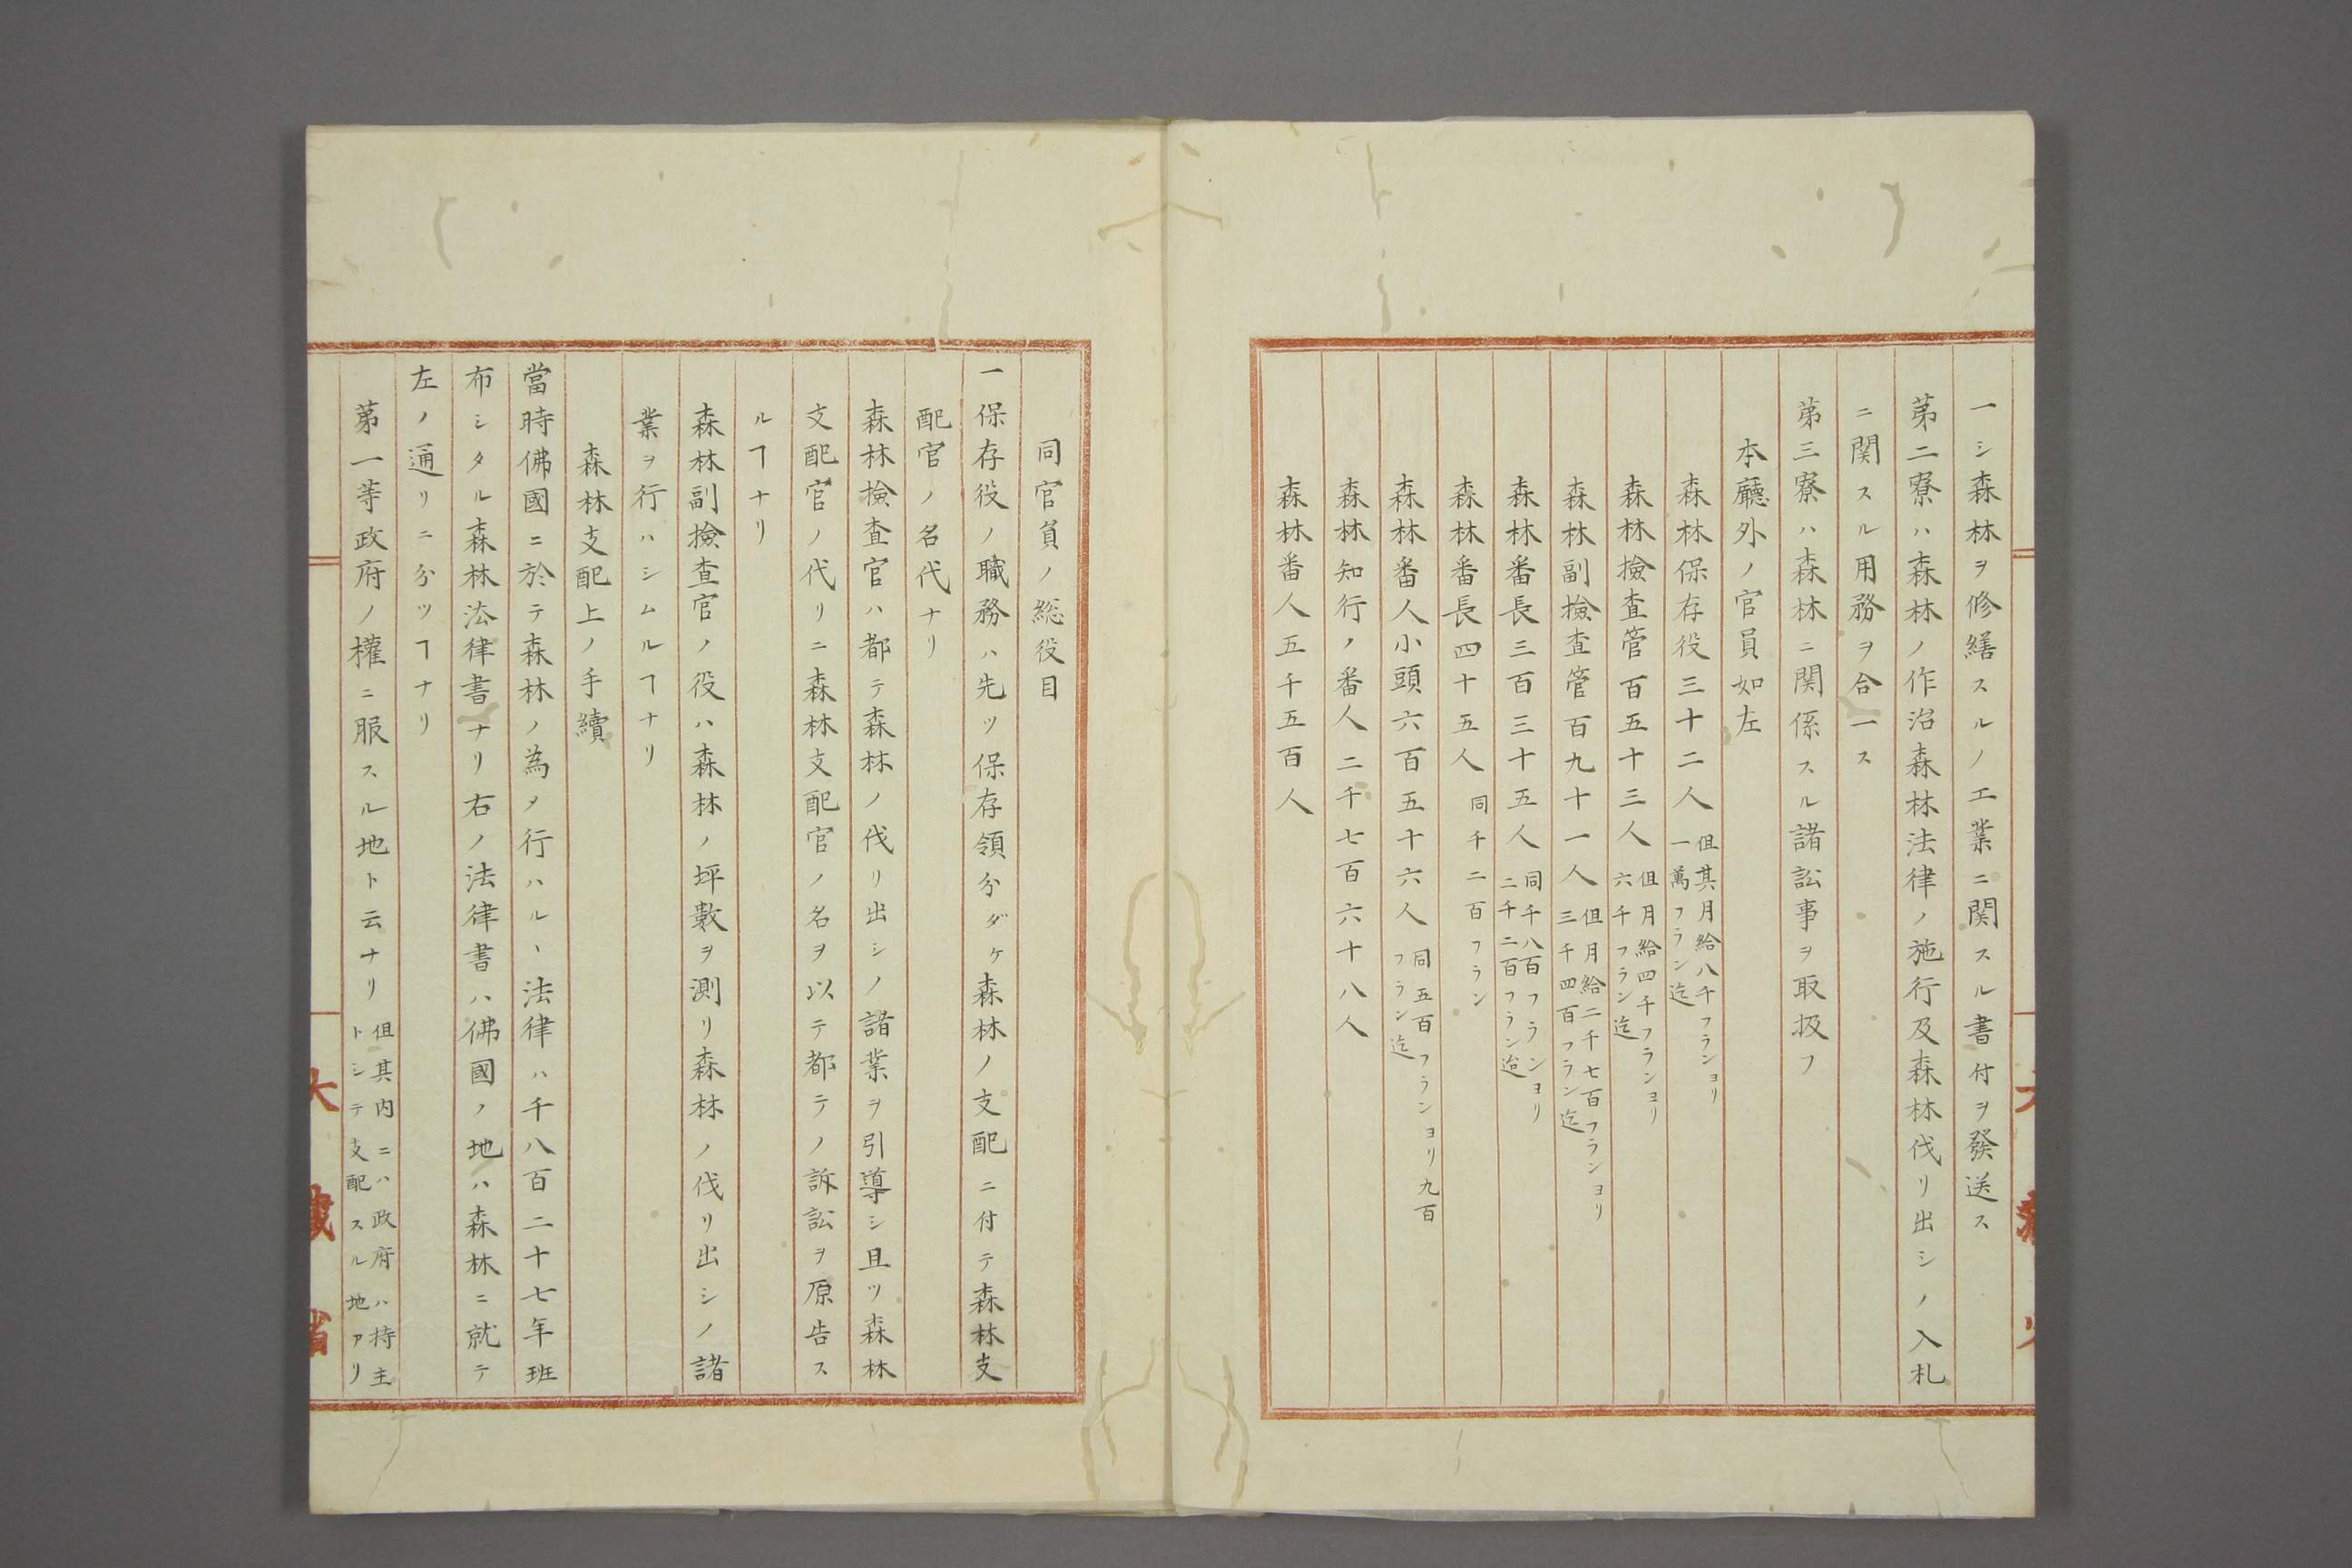 一シ森林ヲ修繕スルノ工業ニ関スル書付ヲ發送ス
第二寮ハ森林ノ作治森林法律ノ施行及森林伐リ出シノ入札
ニ関スル用務ヲ合一ス
第三寮ハ森林ニ関係スル諸訟事ヲ取扱フ
本廳外ノ官員如左
森林保存役三十二人 但其月給八千フランヨリ
一萬フラン迄
森林撿査管百五十三人 但月給四千フランヨリ
六千フラン迄
森林副撿査管百九十一人 但月給二千七百フランヨリ
三千四百フラン迄
森林番長三百三十五人 同千八百フランヨリ
二千二百フラン迠
森林番長四十五人 同千二百フラン
森林番人小頭六百五十六人 同五百フランヨリ九百
フラン迄
森林知行ノ番人二千七百六十八人
森林番人五千五百人
同官員ノ総役目
一保存役ノ職務ハ先ツ保存領分ダケ森林ノ支配ニ付テ森林支
配官ノ名代ナリ
森林撿査官ハ都テ森林ノ伐リ出シノ諸業ヲ引導シ且ツ森林
支配官ノ代リニ森林支配官ノ名ヲ以テ都テノ訴訟ヲ原告ス
ルヿナリ
森林副撿査官ノ役ハ森林ノ坪數ヲ測リ森林ノ伐リ出シノ諸
業ヲ行ハシムルヿナリ
森林支配上ノ手續
當時佛國ニ於テ森林ノ為メ行ハルヽ法律ハ千八百二十七年班
布シタル森林法律書ナリ右ノ法律書ハ佛國ノ地ハ森林ニ就テ
左ノ通リニ分ツヿナリ
第一等政府ノ權ニ服スル地ト云ナリ 但其内ニハ政府ハ持主
トシテ支配スル地アリ
大藏省